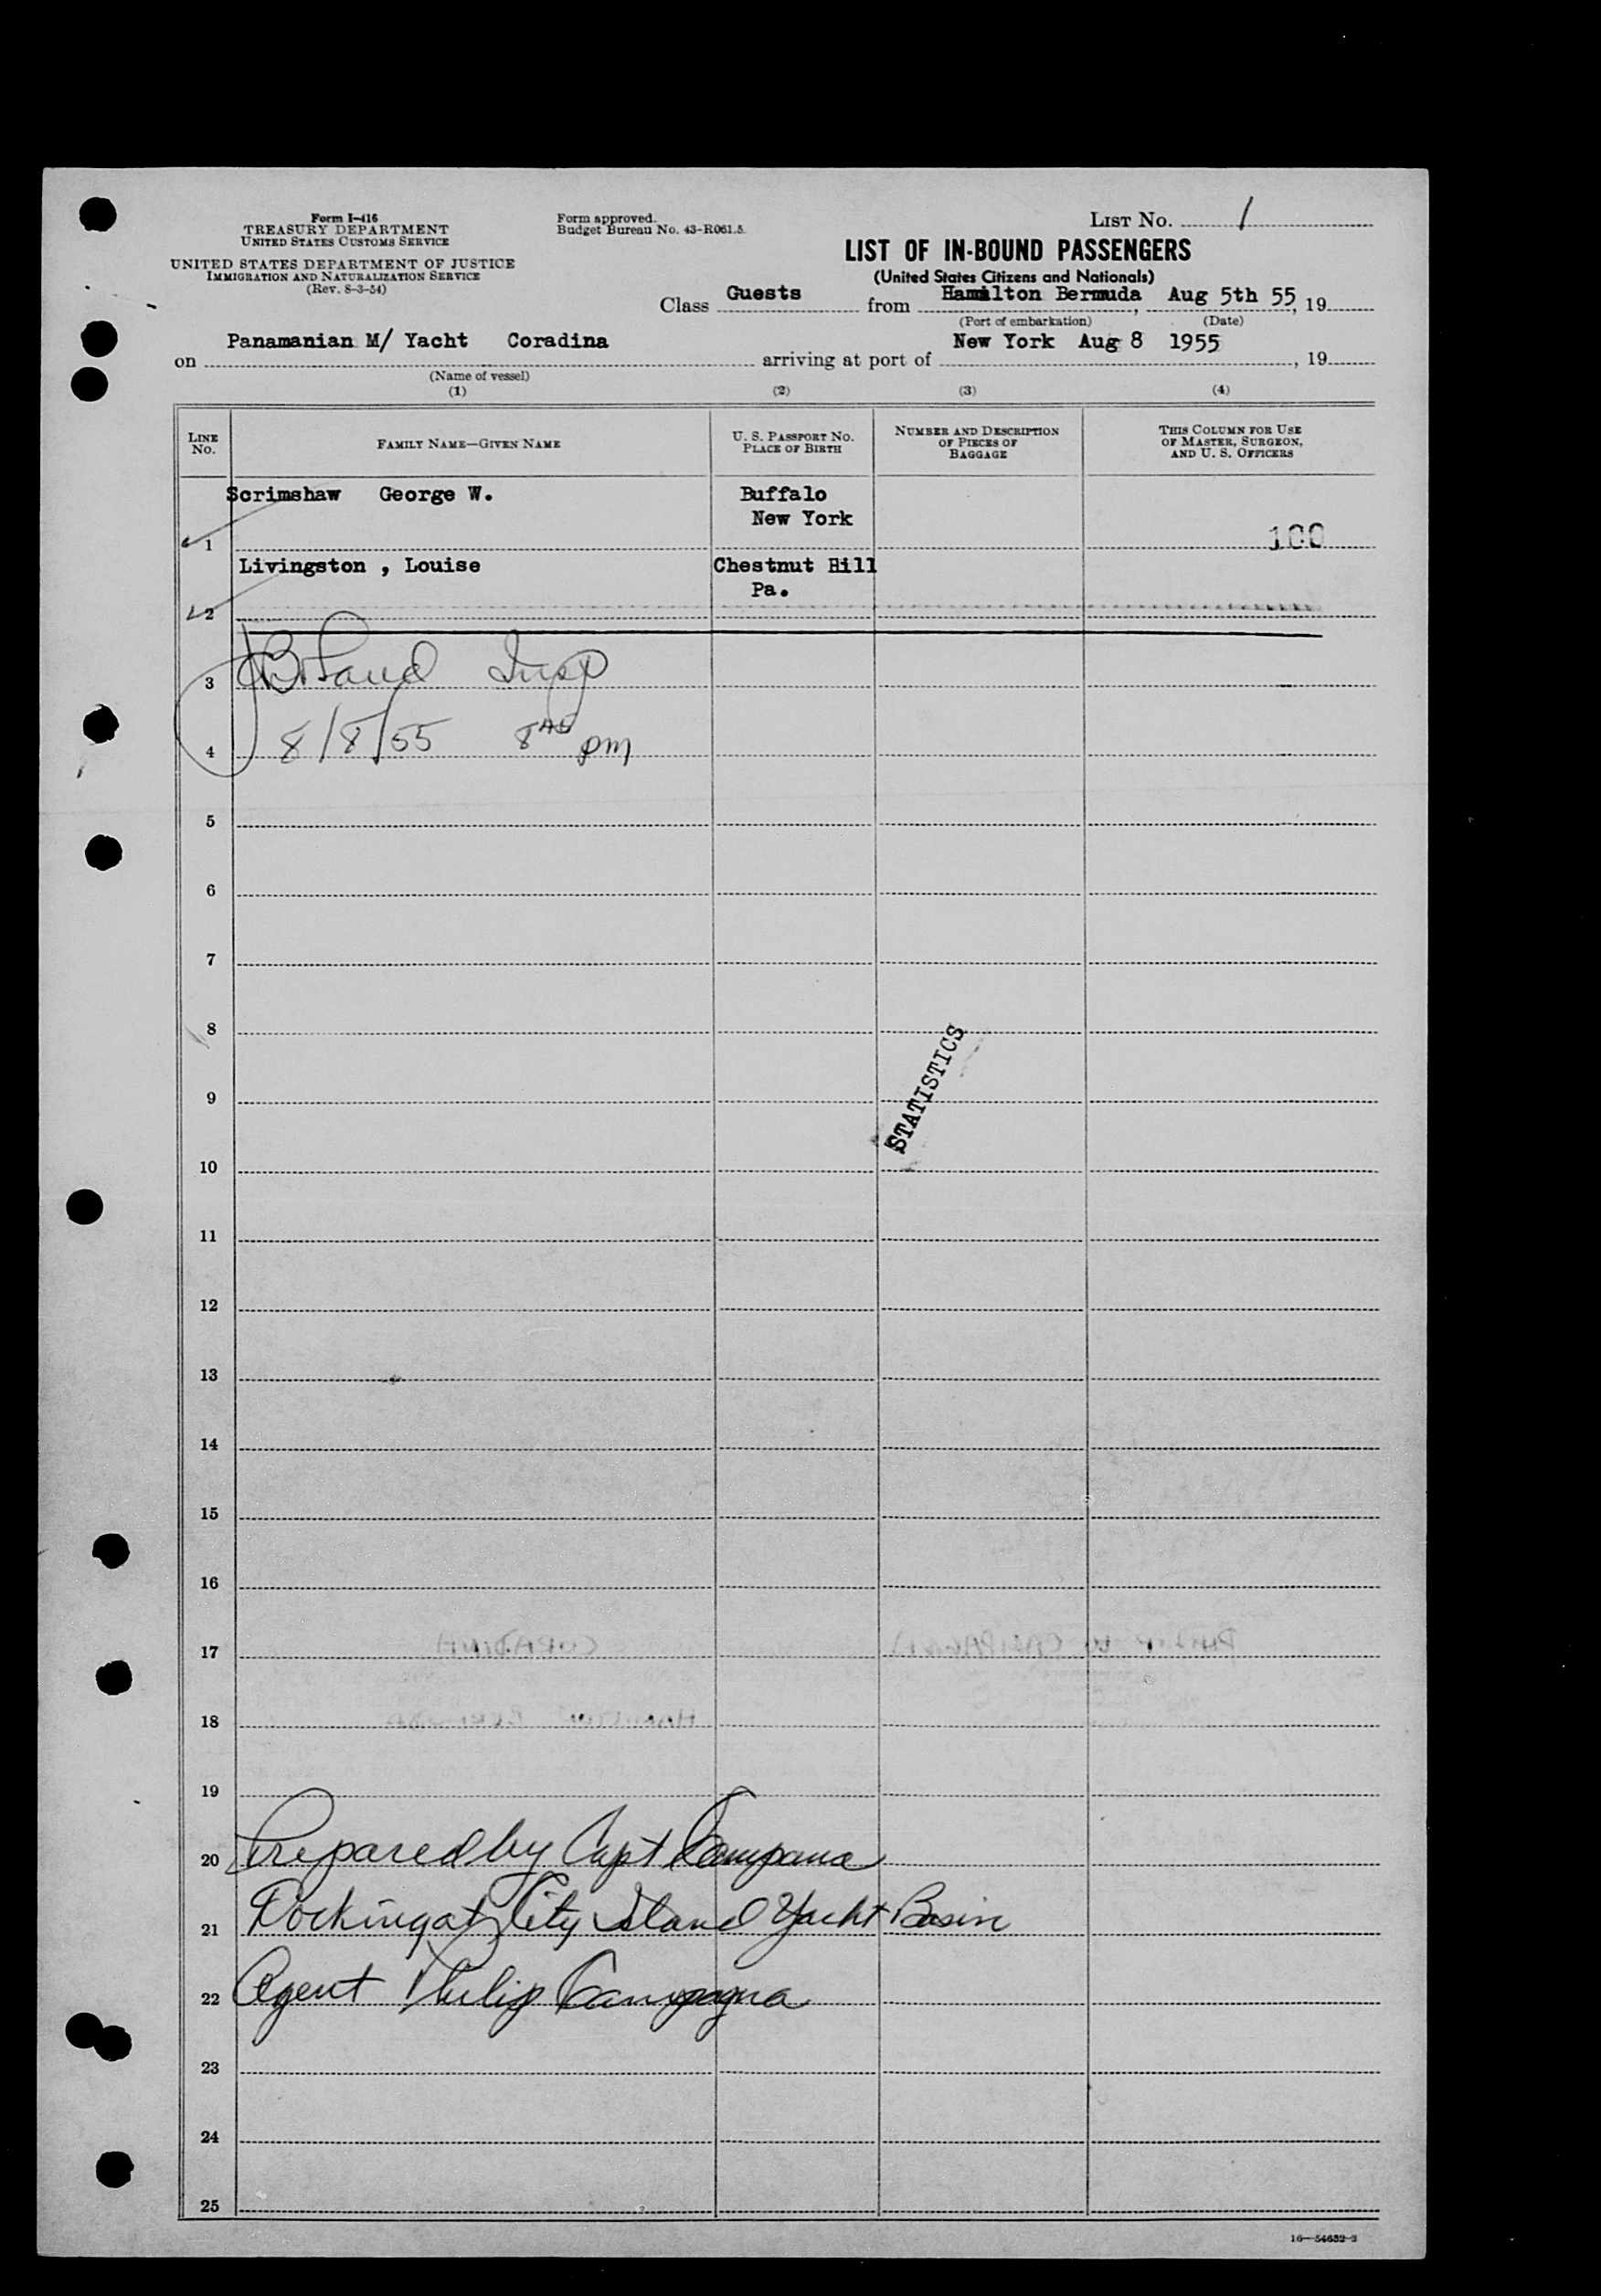 Form I-416
TREASURY DEPARTMENT
UNITED STATES CUSTOMS SERVICE
UNITED STATES DEPARTMENT OF JUSTICE
IMMIGRATION AND NATURALIZATION SERVICE
(Rev. 8-3-54)
Form approved.
Budget Bureau No. 43-R061.5.
LIST No. 1
LIST OF IN-BOUND PASSENGERS
(United States Citizens and Nationals)
Class Guests from Hamilton Bermuda, Aug 5th 55, 19
(Port of embarkation) (Date)
on Panamanian M/ Yacht Coradina arriving at port of New York Aug 8 1955, 19
(Name of vessel)
(1) (2) (3) (4)
LINE NO.
FAMILY NAME—GIVEN NAME
U. S. PASSPORT NO.
PLACE OF BIRTH
NUMBER AND DESCRIPTION
OF PIECES OF
BAGGAGE
THIS COLUMN FOR USE
OF MASTER, SURGEON,
AND U. S. OFFICERS
Scrimshaw George W. Buffalo
New York
1 100
Livingston , Louise Chestnut Hill
Pa.
2
3 Insp
4 8/8/55 8 45 pm
5
6
7
8
STATISTICS
9
10
11
12
13
14
15
16
17
18
19
20 Prepared by Capt Campana
21 Docking at City Island Yacht Basin
22 Agent Philip Campagna
23
24
25
16—54652-3